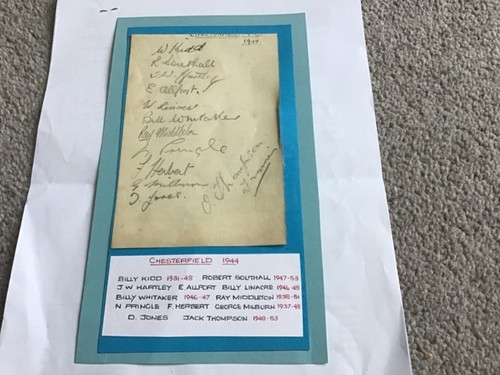 1944
W Kidd
R Southall
J W Hartley
E Allport.
W Linacre
Bill Whitaker
Ray Middleton
N Pringle
F Herbert
G Milburn
D Jones.
J. Thompson
CHESTERFIELD 1944
BILLY KIDD 1931-48 ROBERT SOUTHALL 1947-53
J W HARTLEY E ALLPORT BILLY LINACRE 1946-48
BILLY WHITAKER 1946-47 RAY MIDDLETON 1938-51
N PRINGLE F HERBERT GEORGE MILBURN 1937-48
D. JONES JACK THOMPSON 1948-53